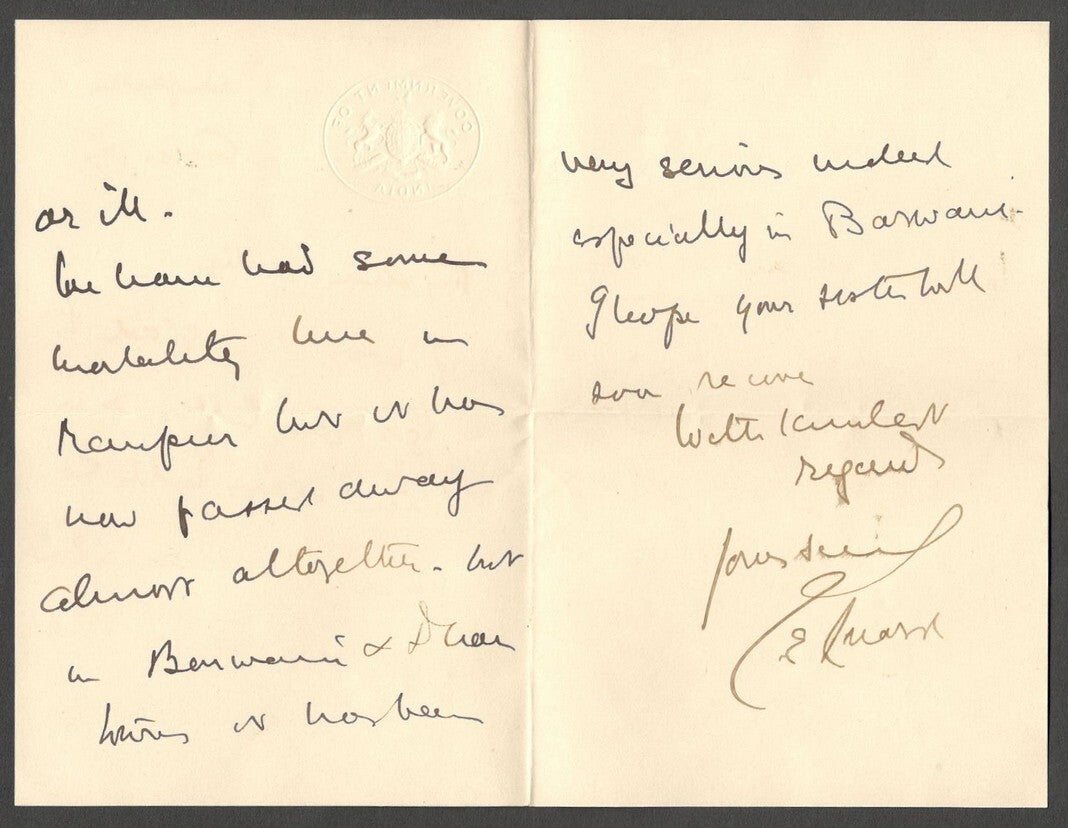 GOVERNMENT OF
INDIA
or ill.
We have had some
mortality here in
Manpur but it has
now passed away
almost altogether - but
in Barwani & Dhar
it has been
very serious indeed
especially in Barwani.
I hope your sister will
soon recover
With kindest
regards
Yours sincerely